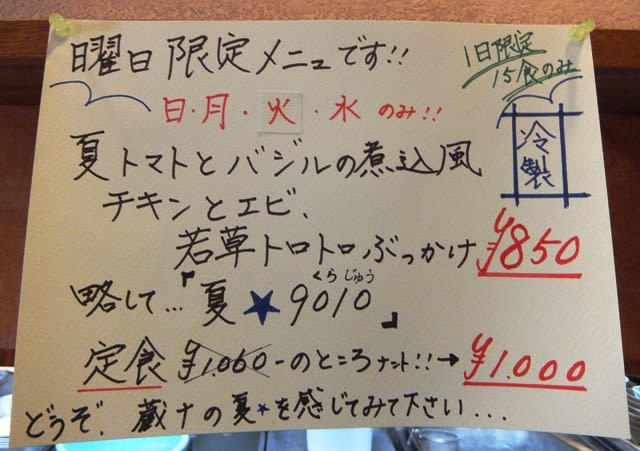 曜日限定メニューです!!
1日限定
15食のみ
日・月・火・水 のみ!!
冷製
夏トマトとバジルの煮込風
チキンとエビ、
若草トロトロぶっかけ ¥850
くらじゅう
略して…『夏★9010』
定食 ¥1.060-のところナント!!→¥1.000
どうぞ、蔵十の夏★を感じてみて下さい...